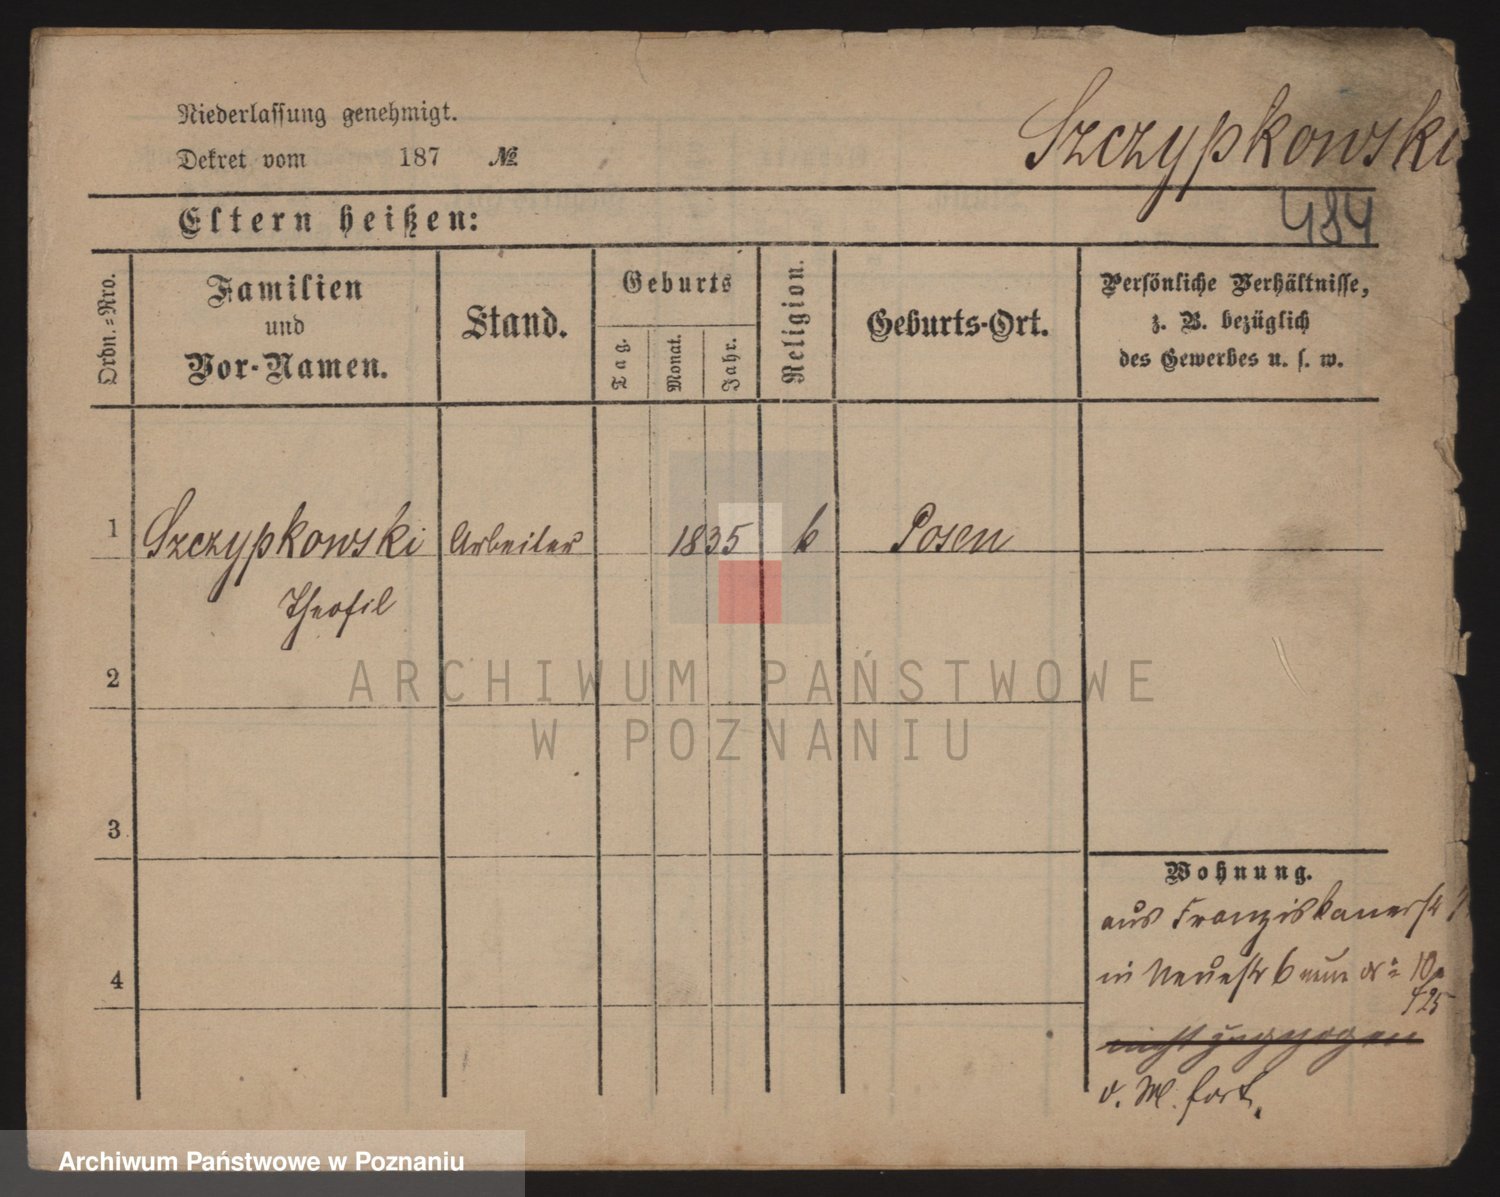 Niederlassung genehmigt.
Dekret vom 187 №
Szczypkowski
484
Eltern heißen:
Ordn.=Nro.
Familien
und
Vor-Namen.
Stand.
Geburts
Tag.
Monat.
Jahr.
Religion.
Geburts-Ort.
Persönliche Verhältnisse,
z. B. bezüglich
des Gewerbes u. s. w.
1 Szczypkowski Arbeiter 1835 k Posen
Theofil
2
3
4
Wohnung.
aus Franziskanerstr
in Neuestr 6 10
nicht zugezogen
o. M. fort.
ARCHIWUM PAŃSTWOWE
W POZNANIU
Archiwum Państwowe w Poznaniu